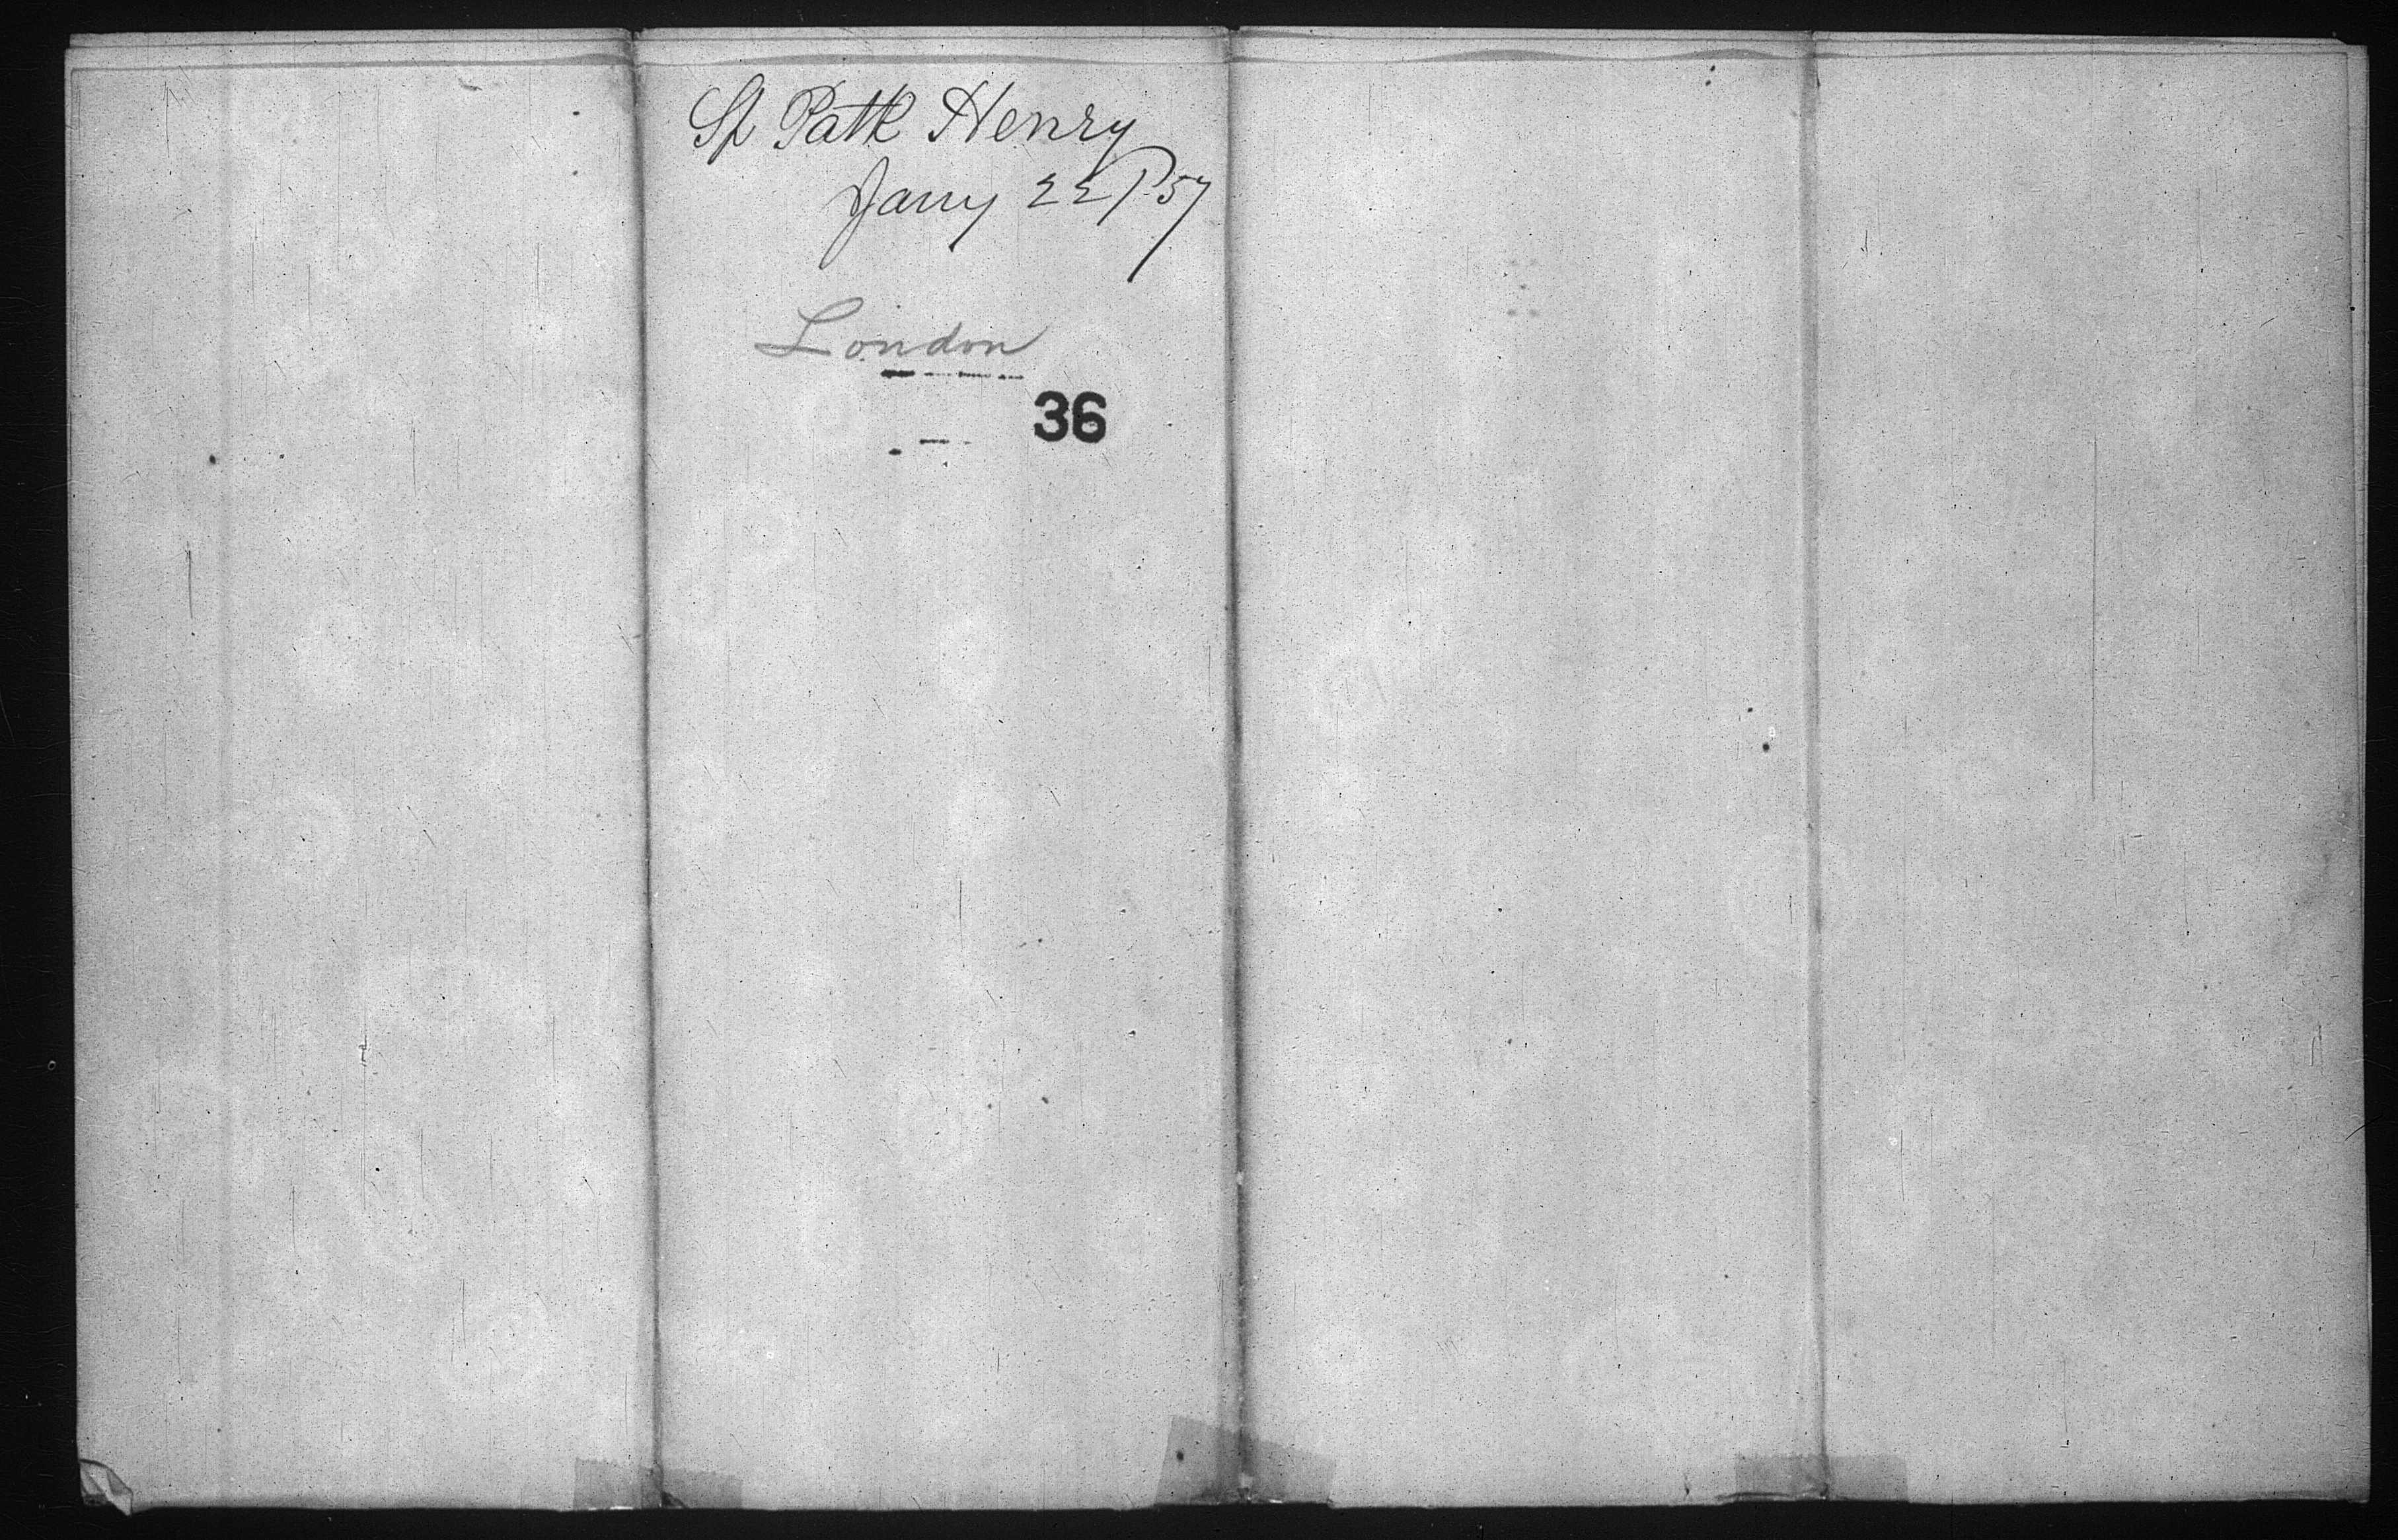 Sp Patk Henry
Jany 22/57
London
36